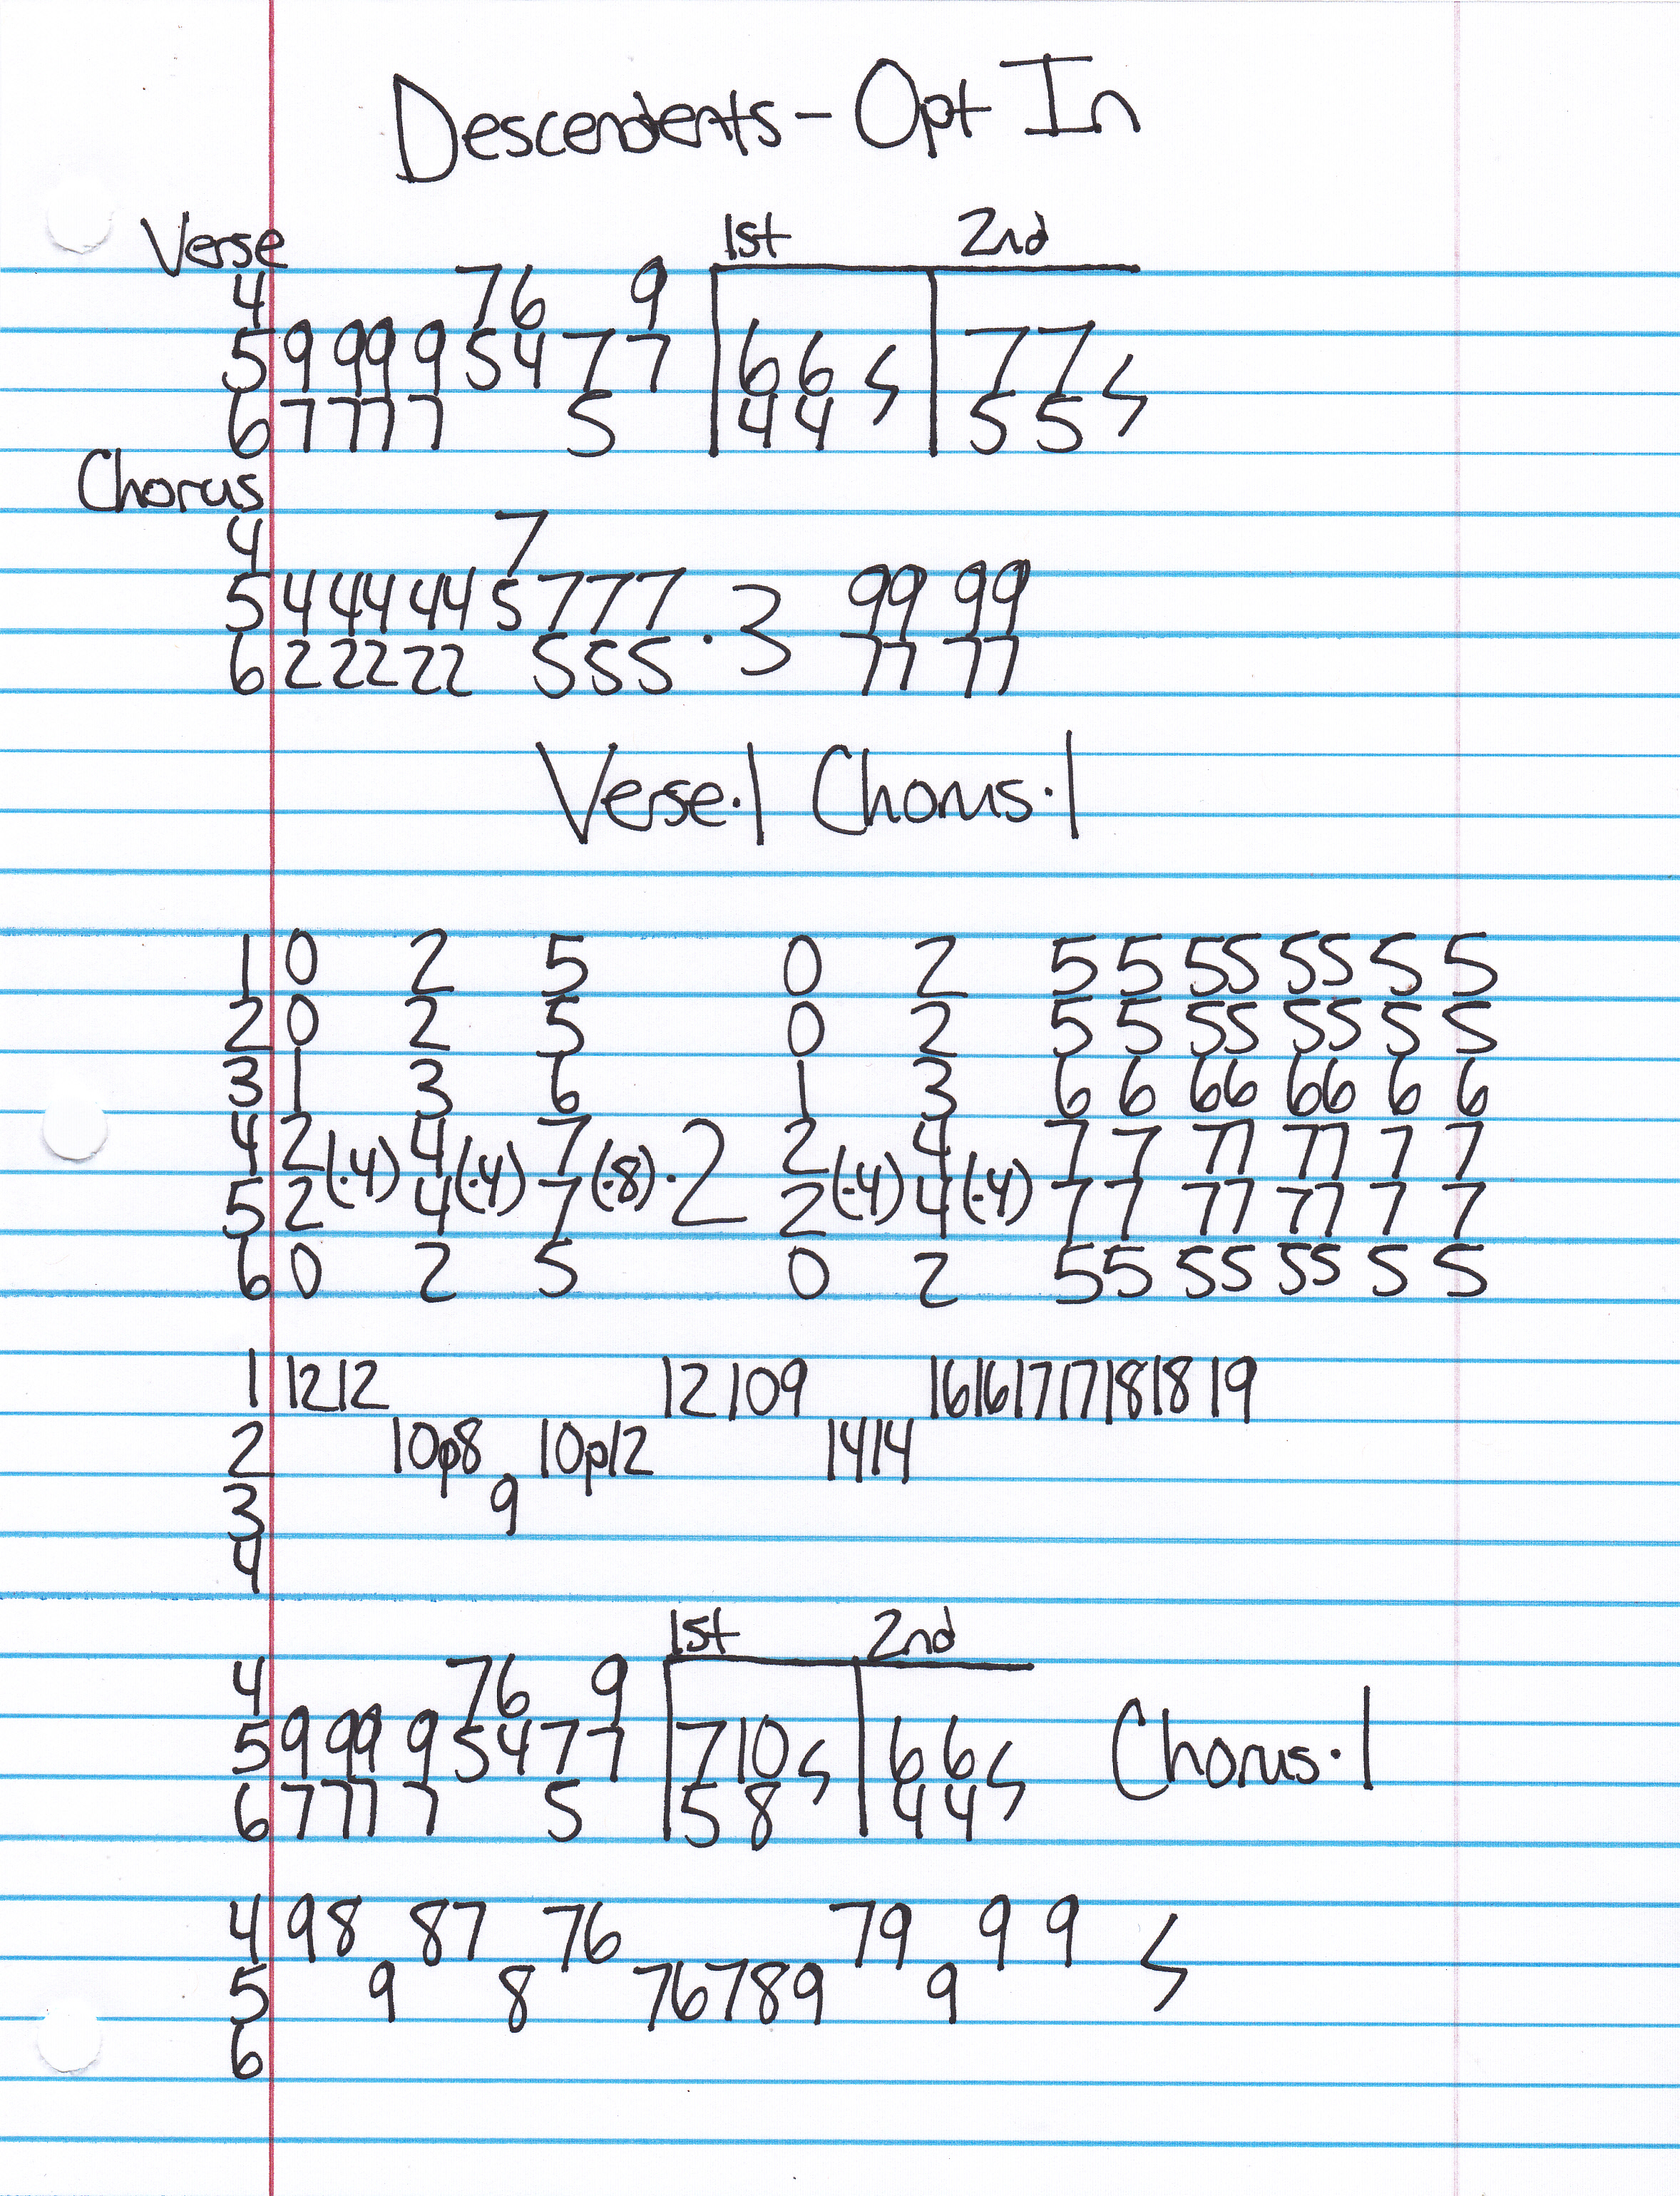 Descendents - Opt In
Verse 1st 2nd
4 7 6 9
5 9 99 9 5 4 7 7 6 6 7 7
6 7 77 7 5 4 4 5 5
Chorus
4 7
5 4 44 44 5 7 7 7 · 3 99 99
6 2 22 22 5 5 5 77 77
Verse·1 Chorus·1
1 0 2 5 0 2 5 5 55 55 5 5
2 0 2 5 0 2 5 5 55 55 5 5
3 1 3 6 1 3 6 6 66 66 6 6
4 2 (·4) 4 (·4) 7 (·8) · 2 2 (·4) 4 (·4) 7 7 77 77 7 7
5 2 4 7 2 4 7 7 77 77 7 7
6 0 2 5 0 2 5 5 55 55 5 5
1 12 12 12 10 9 16 16 17 17 18 18 19
2 10p8 10p12 14 14
3 9
4
1st 2nd
4 7 6 9
5 9 99 9 5 4 7 7 7 10 6 6 Chorus·1
6 7 77 7 5 5 8 4 4
4 9 8 8 7 7 6 7 9 9 9
5 9 8 7 6 7 8 9 9
6